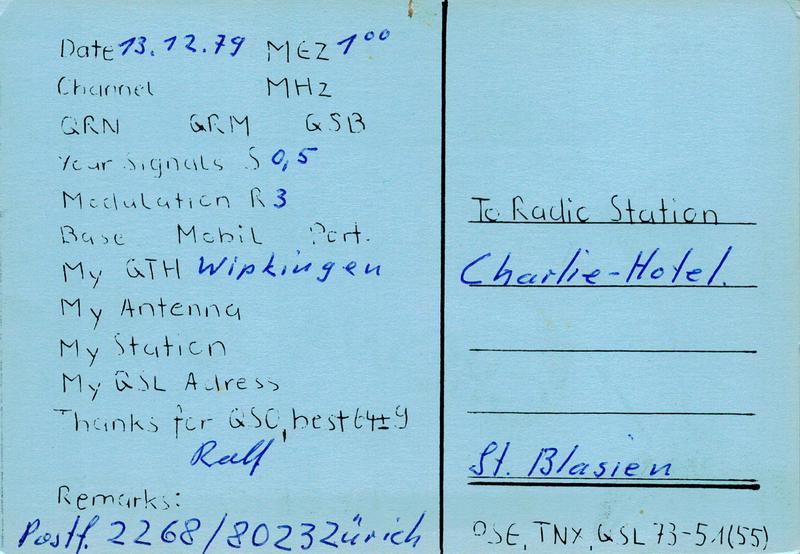 Date 13.12.79 MEZ 1⁰⁰
Channel MHz
QRN QRM QSB
Your Signals S 0,5
Modulation R 3
Base Mobil Port.
My QTH Wipkingen
My Antenna
My Station
My QSL Adress
Thanks for QSO, best 64±9
Ralf
Remarks:
Postf. 2268/8023 Zürich
To Radio Station
Charlie-Hotel.
St. Blasien
PSE, TNX, QSL 73-51(55)